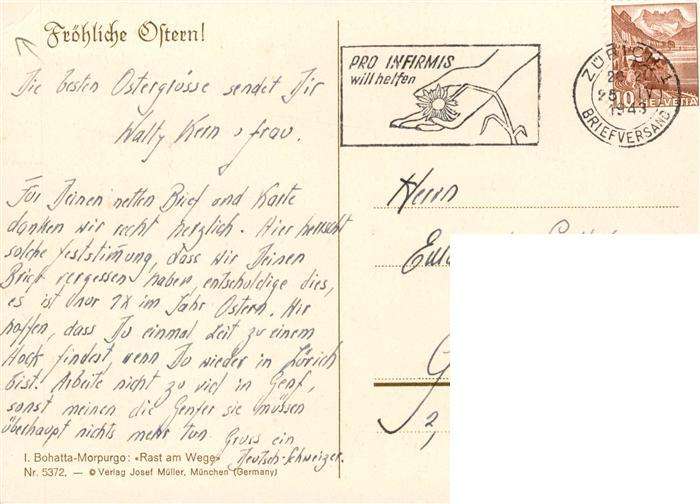 Fröhliche Ostern!
Die besten Ostergrüsse sendet Dir
Walty Kern & frau.
Für Deinen netten Brief und Karte
danken wir recht herzlich. Hier herrscht
solche feststimung, dass wir Deinen
Brief vergessen haben, entschuldige dies,
es ist nur 1x im Jahr Ostern. Wir
hoffen, dass Du einmal Zeit zu einem
Hock findest, wenn Du wieder in Zürich
bist. Arbeite nicht zu viel in Genf,
sonst meinen die Genfer sie müssen
überhaupt nichts mehr tun. Gruss ein
Deutsch-Schweizer.
I. Bohatta-Morpurgo: «Rast am Wege»
Nr. 5372, — © Verlag Josef Müller, München (Germany)
PRO INFIRMIS
will helfen
ZÜRICH 1
25
1943
BRIEFVERSAND
10 HELVETIA
Herrn